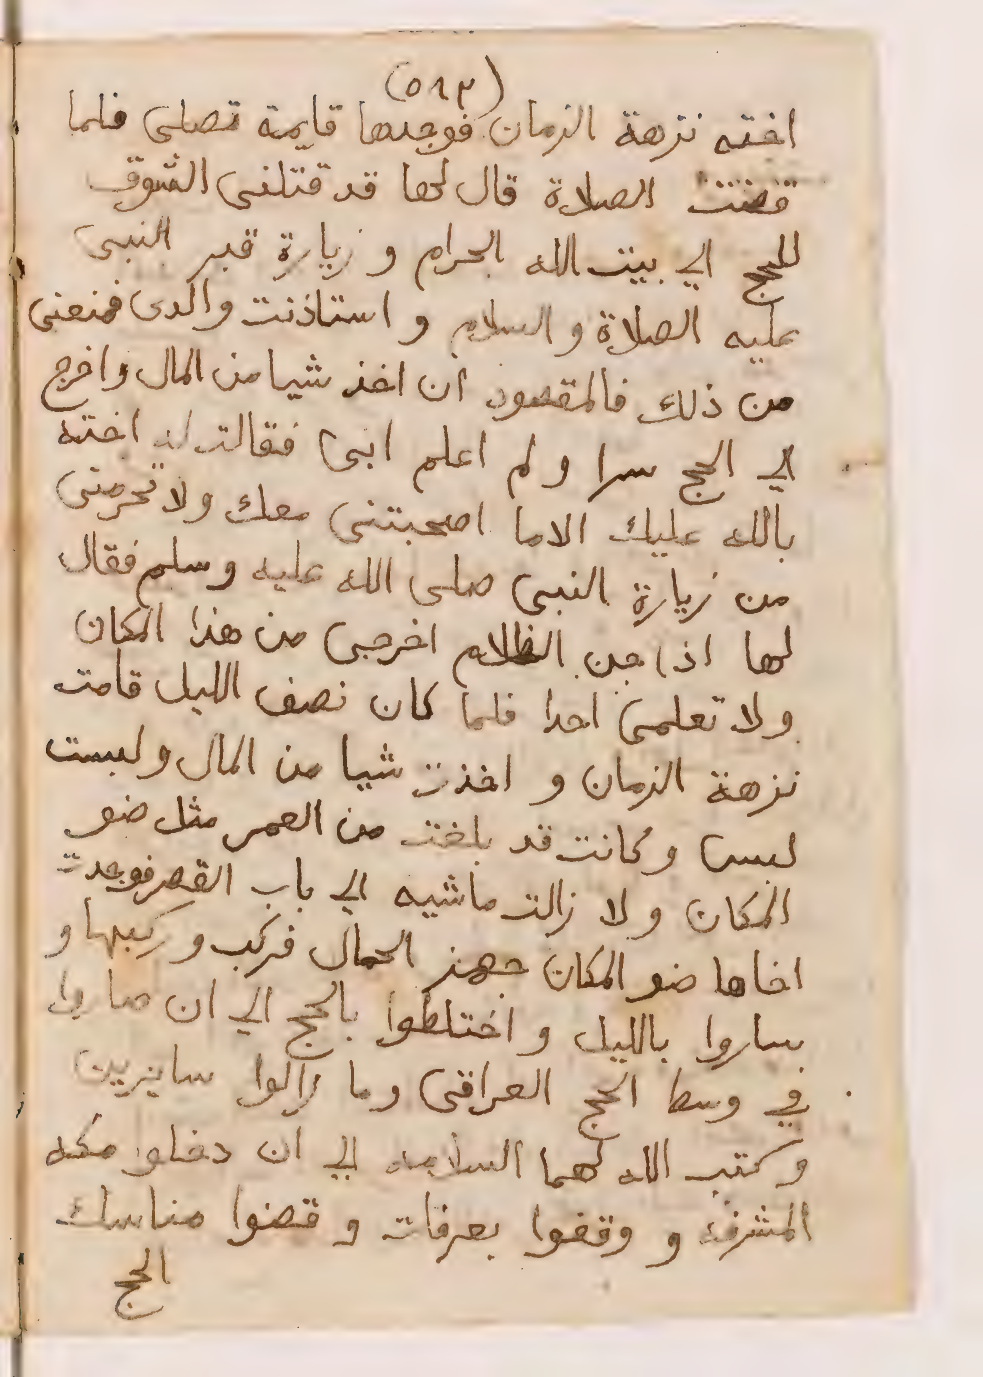 (٥٨٣)
اخته نزهة الزمان فوجدها قايمة تصلى فلما
قضت الصلاة قال لها قد قتلنى الشوق
للحج الي بيت الله الحرام و زيارة قبر النبى
عليه الصلاة و السلام و استاذنت والدى فمنعنى
من ذلك فالمقصود ان اخذ شيا من المال واخرج
الي الحج سرا و لم اعلم ابى فقالت له اخته
بالله عليك الاما اصحبتنى معك ولا تحرمنى
من زيارة النبى صلى الله عليه وسلم فقال
لها اذا جن الظلام اخرجى من هذا المكان
ولا تعلمى احدا فلما كان نصف الليل قامت
نزهة الزمان و اخذت شيا من المال ولبست
لبس و كانت قد بلغت من العمر مثل ضو
المكان و لا زالت ماشيه الي باب القصر فوجدت
اخاها ضو المكان جهز الجمال فركب و ركبها و
ساروا بالليل و اختلطوا بالحج الي ان صاروا
في وسط الحج العراقى وما زالوا سايرين
و كتب الله لهما السلامه الي ان دخلوا مكه
المشرفه و وقفوا بعرفات و قضوا مناسك
الحج